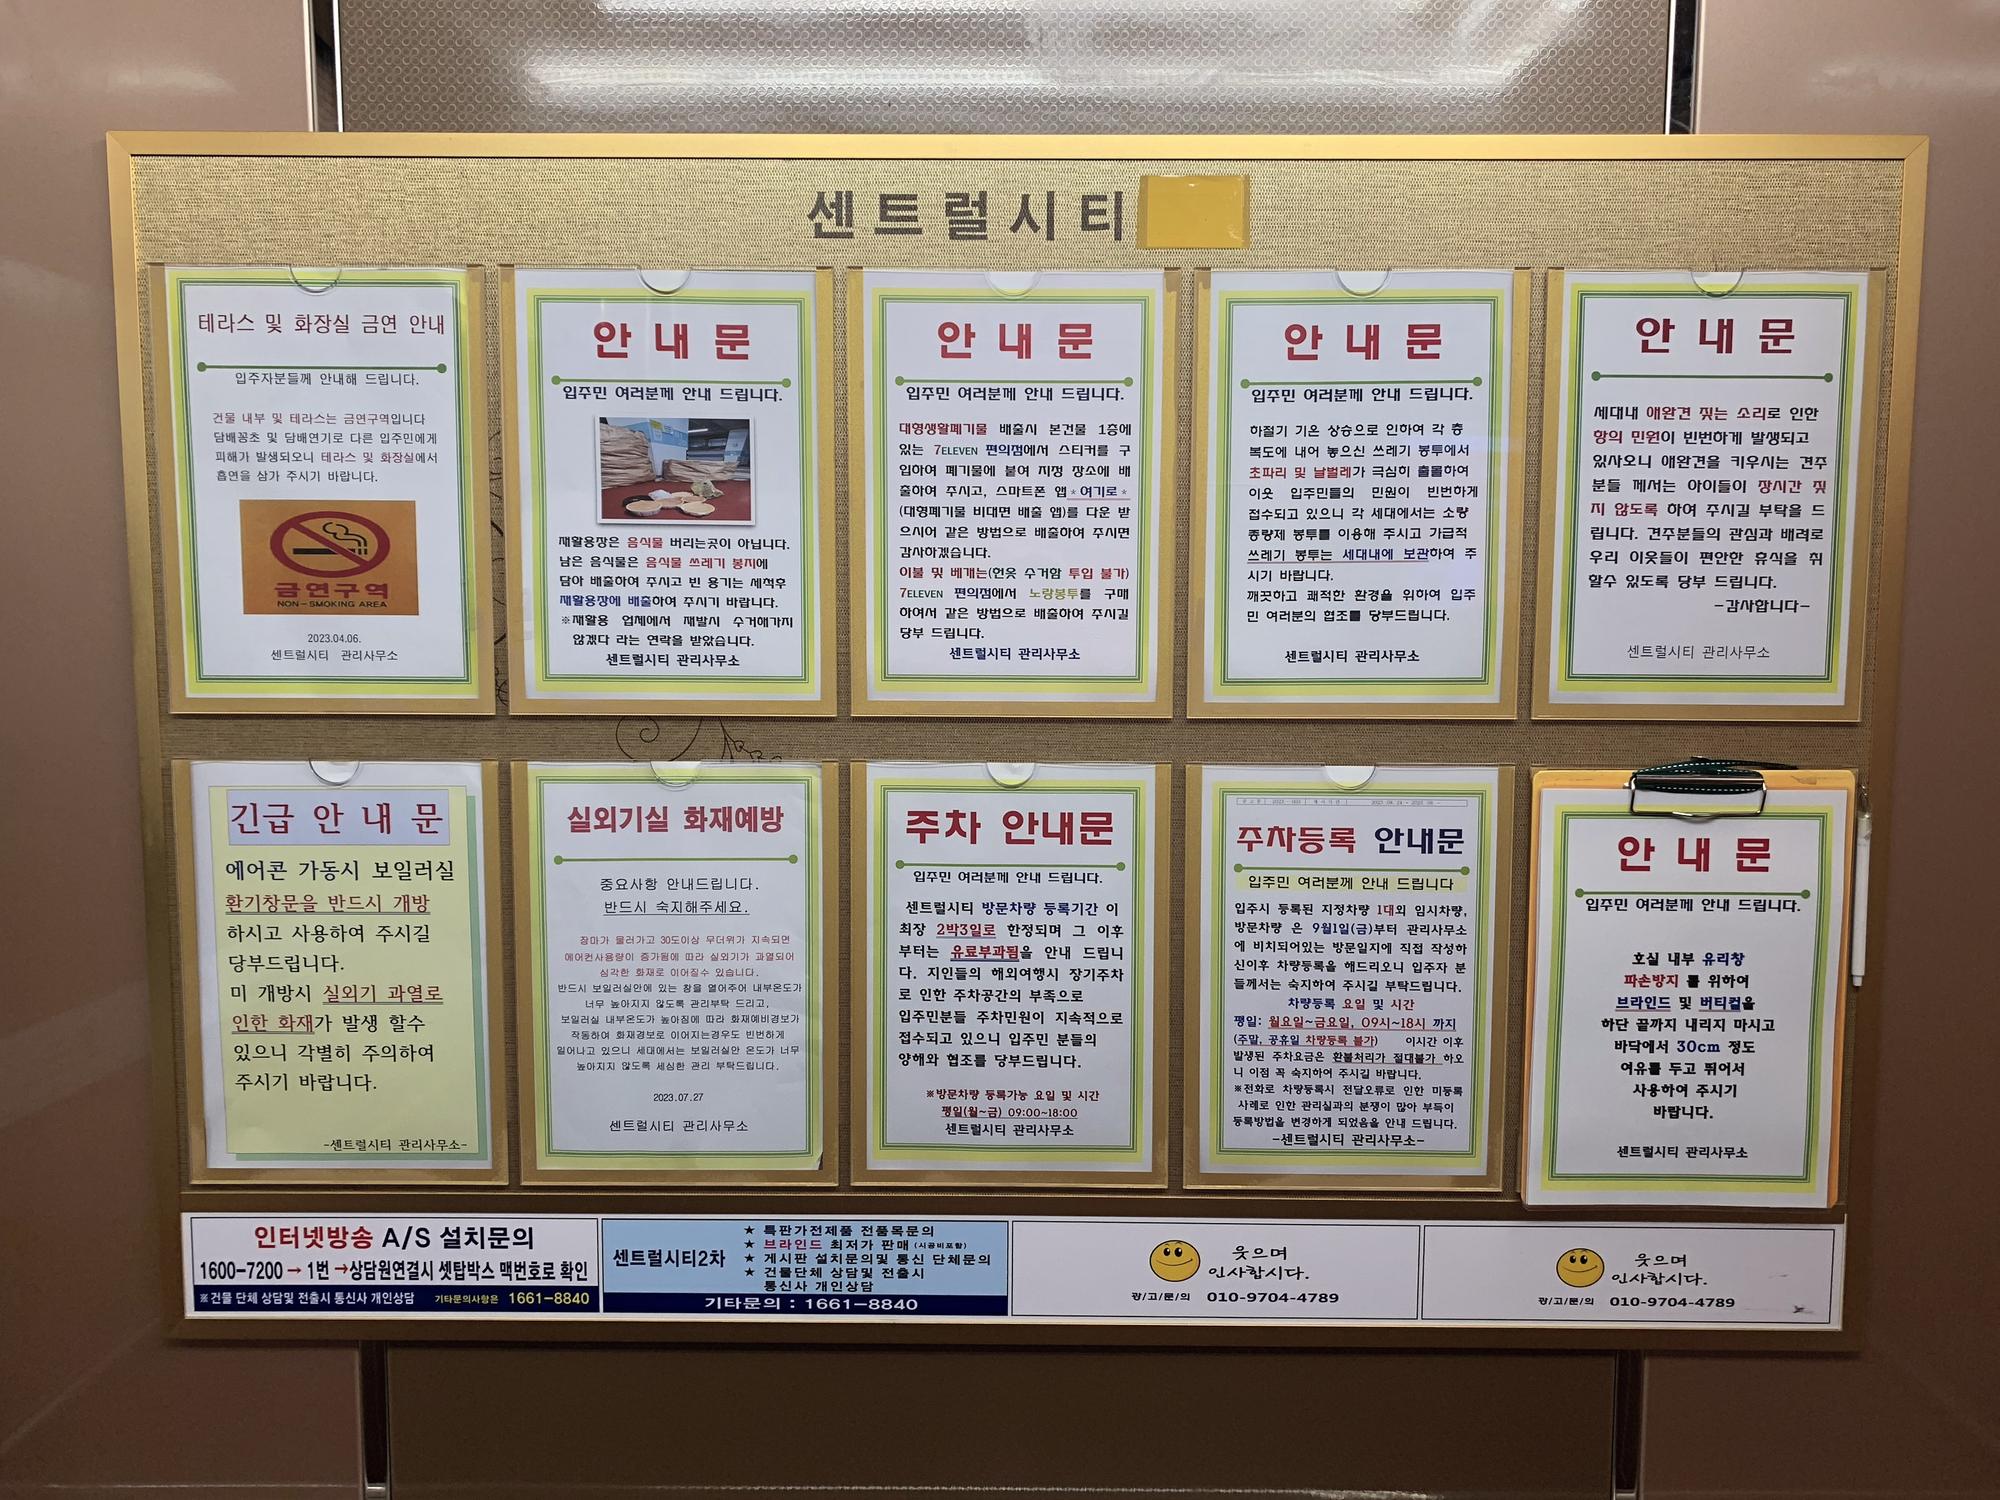 센트럴시티
테라스 및 화장실 금연 안내
입주자분들께 안내해 드립니다.
건물 내부 및 테라스는 금연구역입니다
담배꽁초 및 담배연기로 다른 입주민에게
피해가 발생되오니 테라스 및 화장실에서
흡연을 삼가 주시기 바랍니다.
금연구역
NON-SMOKING AREA
2023.04.06.
센트럴시티 관리사무소
안 내 문
입주민 여러분께 안내 드립니다.
재활용장은 음식물 버리는곳이 아닙니다.
남은 음식물은 음식물 쓰레기 봉지에
담아 배출하여 주시고 빈 용기는 세척후
재활용장에 배출하여 주시기 바랍니다.
※재활용 업체에서 재발시 수거해가지
않겠다 라는 연락을 받았습니다.
센트럴시티 관리사무소
안 내 문
입주민 여러분께 안내 드립니다.
대형생활폐기물 배출시 본건물 1층에
있는 7ELEVEN 편의점에서 스티커를 구
입하여 폐기물에 붙여 지정 장소에 배
출하여 주시고, 스마트폰 앱*여기로*
(대형폐기물 비대면 배출 앱)를 다운 받
으시어 같은 방법으로 배출하여 주시면
감사하겠습니다.
이불 및 베개는(헌옷 수거함 투입 불가)
7ELEVEN 편의점에서 노랑봉투를 구매
하여서 같은 방법으로 배출하여 주시길
당부 드립니다.
센트럴시티 관리사무소
안 내 문
입주민 여러분께 안내 드립니다.
하절기 기온 상승으로 인하여 각 층
복도에 내어 놓으신 쓰레기 봉투에서
초파리 및 날벌레가 극심히 출몰하여
이웃 입주민들의 민원이 빈번하게
접수되고 있으니 각 세대에서는 소량
종량제 봉투를 이용해 주시고 가급적
쓰레기 봉투는 세대내에 보관하여 주
시기 바랍니다.
깨끗하고 쾌적한 환경을 위하여 입주
민 여러분의 협조를 당부드립니다.
센트럴시티 관리사무소
안 내 문
세대내 애완견 짖는 소리로 인한
항의 민원이 빈번하게 발생되고
있사오니 애완견을 키우시는 견주
분들 께서는 아이들이 장시간 짖
지 않도록 하여 주시길 부탁을 드
립니다. 견주분들의 관심과 배려로
우리 이웃들이 편안한 휴식을 취
할수 있도록 당부 드립니다.
-감사합니다-
센트럴시티 관리사무소
긴급 안 내 문
에어콘 가동시 보일러실
환기창문을 반드시 개방
하시고 사용하여 주시길
당부드립니다.
미 개방시 실외기 과열로
인한 화재가 발생 할수
있으니 각별히 주의하여
주시기 바랍니다.
-센트럴시티 관리사무소-
실외기실 화재예방
중요사항 안내드립니다.
반드시 숙지해주세요.
장마가 물러가고 30도이상 무더위가 지속되면
에어컨사용량이 증가됨에 따라 실외기가 과열되어
심각한 화재로 이어질수 있습니다.
반드시 보일러실안에 있는 창을 열어주어 내부온도가
너무 높아지지 않도록 관리부탁 드리고,
보일러실 내부온도가 높아짐에 따라 화재예비경보가
작동하여 화재경보로 이어지는경우도 빈번하게
일어나고 있으니 세대에서는 보일러실안 온도가 너무
높아지지 않도록 세심한 관리 부탁드립니다.
2023.07.27
센트럴시티 관리사무소
주차 안내문
입주민 여러분께 안내 드립니다.
센트럴시티 방문차량 등록기간 이
최장 2박3일로 한정되며 그 이후
부터는 유료부과됨을 안내 드립니
다. 지인들의 해외여행시 장기주차
로 인한 주차공간의 부족으로
입주민분들 주차민원이 지속적으로
접수되고 있으니 입주민 분들의
양해와 협조를 당부드립니다.
※방문차량 등록가능 요일 및 시간
평일(월~금) 09:00~18:00
센트럴시티 관리사무소
주차등록 안내문
입주민 여러분께 안내 드립니다
입주시 등록된 지정차량 1대외 임시차량,
방문차량 은 9월1일(금)부터 관리사무소
에 비치되어있는 방문일지에 직접 작성하
신이후 차량등록을 해드리오니 입주자 분
들께서는 숙지하여 주시길 부탁드립니다.
차량등록 요일 및 시간
평일: 월요일~금요일, 09시~18시 까지
(주말, 공휴일 차량등록 불가) 이시간 이후
발생된 주차요금은 환불처리가 절대불가 하오
니 이점 꼭 숙지하여 주시길 바랍니다.
※전화로 차량등록시 전달오류로 인한 미등록
사례로 인한 관리실과의 분쟁이 많아 부득이
등록방법을 변경하게 되었음을 안내 드립니다.
-센트럴시티 관리사무소-
안 내 문
입주민 여러분께 안내 드립니다.
호실 내부 유리창
파손방지 를 위하여
브라인드 및 버티컬을
하단 끝까지 내리지 마시고
바닥에서 30cm 정도
여유를 두고 뛰어서
사용하여 주시기
바랍니다.
센트럴시티 관리사무소
인터넷방송 A/S 설치문의
1600-7200→1번→상담원연결시 셋탑박스 맥번호로 확인
※건물 단체 상담및 전출시 통신사 개인상담 기타문의사항은 1661-8840
센트럴시티2차
★ 특판가전제품 전품목문의
★ 브라인드 최저가 판매 (시공비포함)
★ 게시판 설치문의및 통신 단체문의
★ 건물단체 상담및 전출시
통신사 개인상담
기타문의 : 1661-8840
웃으며
인사합시다.
광/고/문/의 010-9704-4789
웃으며
인사합시다.
광/고/문/의 010-9704-4789